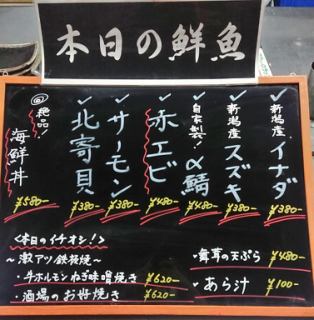 本日の鮮魚
新潟産 イナダ ¥380-
新潟産 スズキ ¥380-
自家製! 〆鯖 ¥480-
赤エビ ¥480-
サーモン ¥380-
北寄貝 ¥380-
絶品! 海鮮丼 ¥580-
<本日のイチオシ!>
~激アツ鉄板焼~
・牛ホルモンねぎ味噌焼き ¥620-
・酒場のお好焼き ¥620-
・舞茸の天ぷら ¥480-
・あら汁 ¥100-